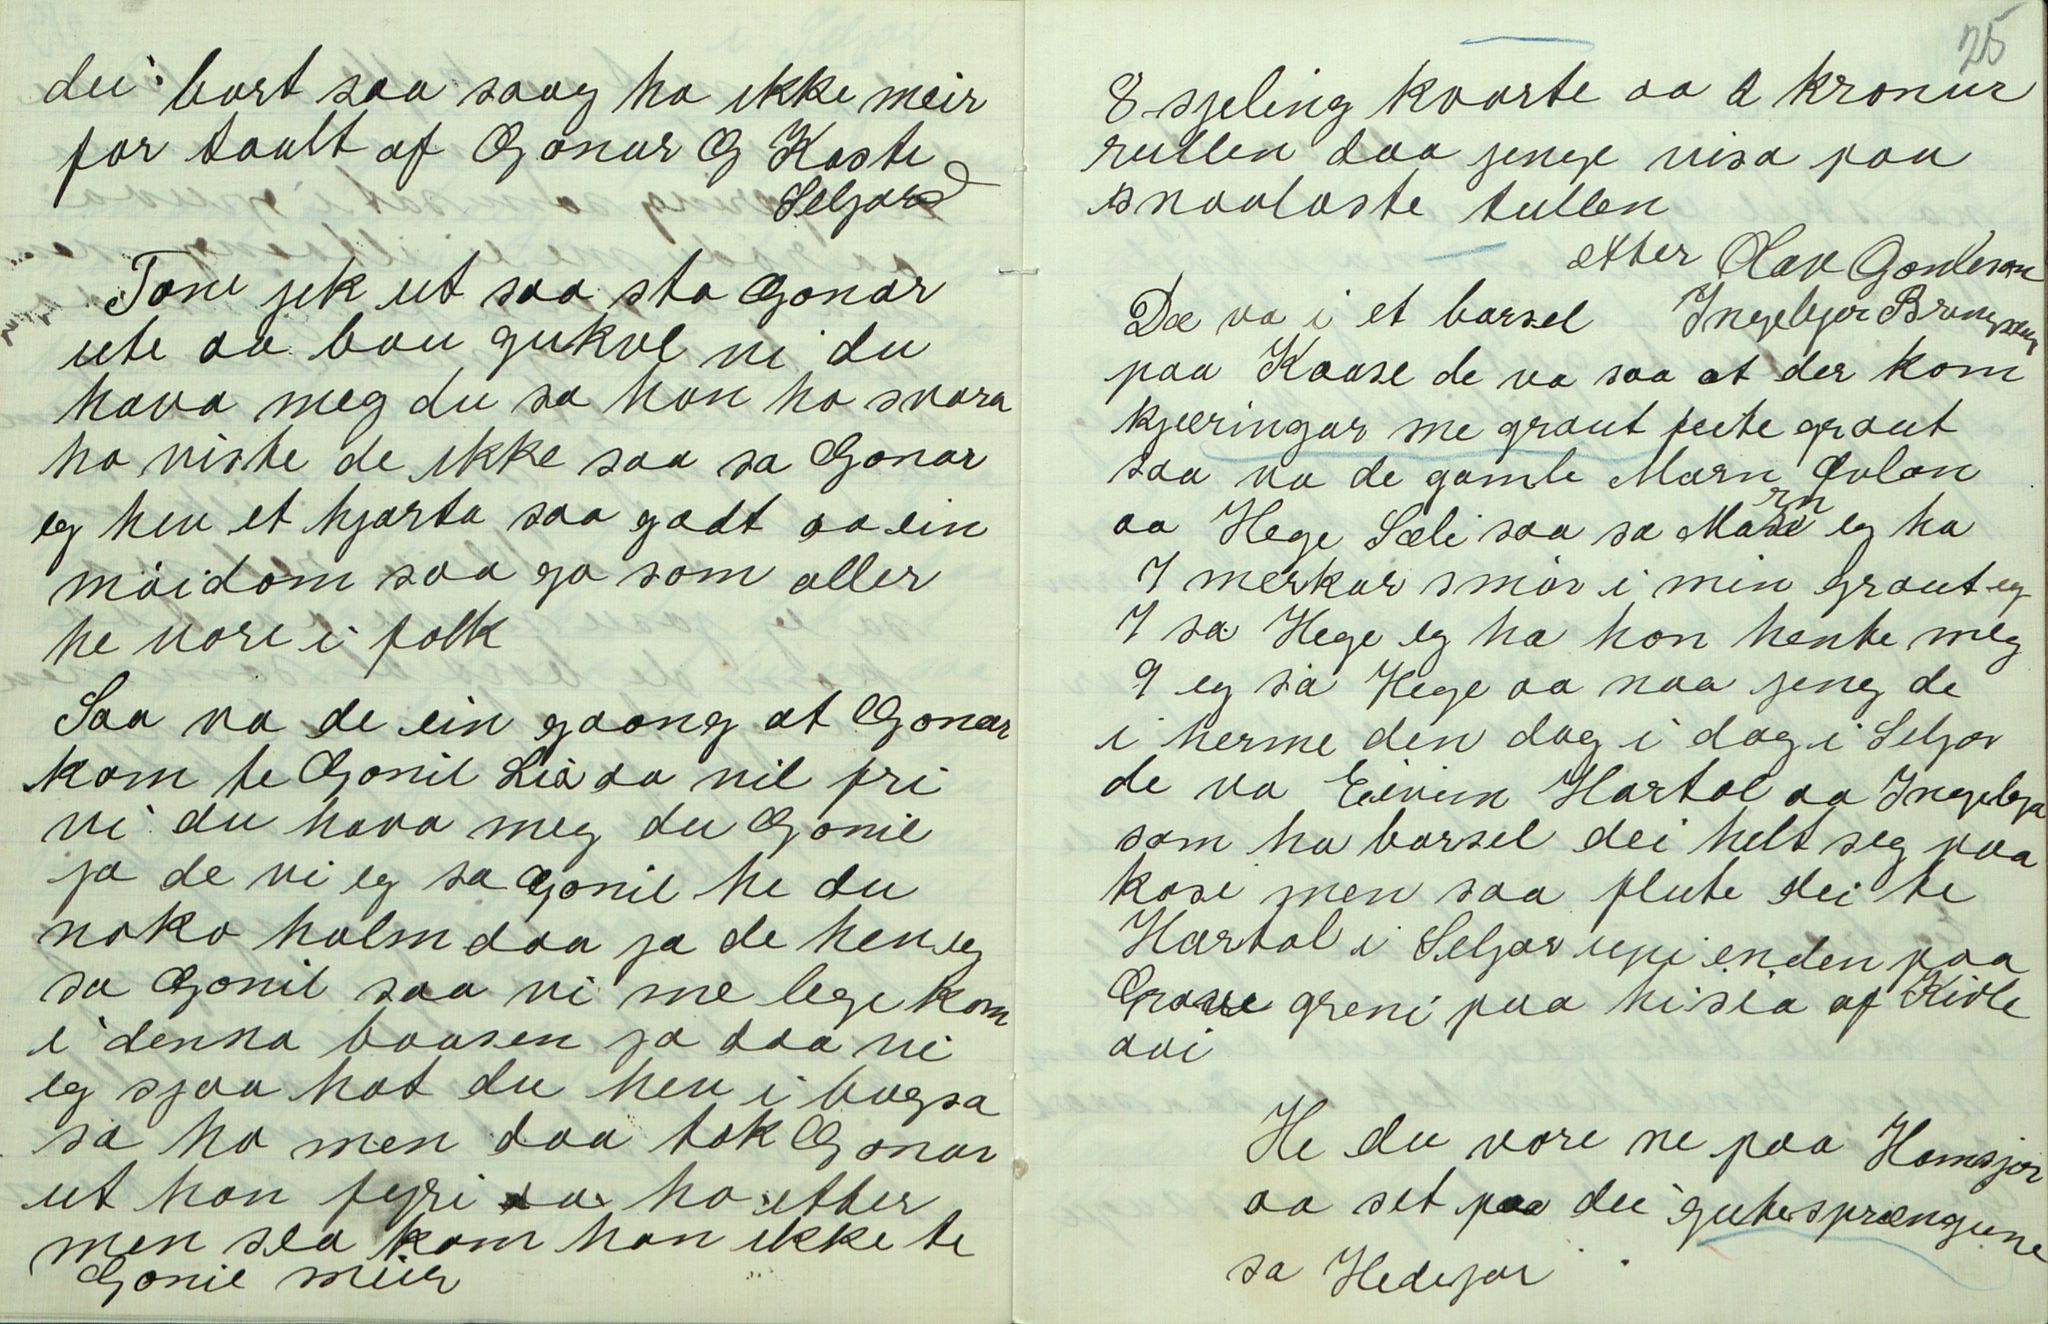 dei bort saa saag ho ikke meir
for taalt af Gonar G Kaste
Seljord
Tone jek ut saa sto Gonar
ute aa bau gukvel vi du
hava meg du sa han ho svara
ho viste de ikke saa sa Gonar
eg heu et hjarta saa godt aa ein
möidom saa go som aller
he vore i folk
Saa va de ein gaang at Gonar
kom te Gonil Lia aa vil fri
vi du hava meg du Gonil
ja de vi eg sa Gonil he du
noko halm daa ja de heu eg
sa Gonil saa vi me lege kom
i denna baasen ja daa vi
eg sjaa hot du heu i bogsa
sa ho men daa tok Gonar
ut han fyri aa ho etter
men sea kom han ikke te
Gonil meir
25
8 sjeling kvarte aa 2 kronur
rullen daa jenge visa paa
snaalaste tullen
etter Olav Gonleson
Ingebjor Brungsaug
Dæ va i et barsel
paa Kaase de va saa at der kom
kjæringar me graut feite graut
saa va de gamle Marn Qvlan
aa Hege Sæli saa sa Marn eg ha
7 merkar smör i min graut eg
7 sa Hege eg ha hon hente meg
9 eg sa Hege aa naa jeng de
i herme den dag i dag i Seljor
de va Eivin Hartol aa Ingebjor
som ha barsel dei helt seg paa
kase men saa flute dei te
Hartol i Seljor upi enden paa
Grave greni paa hisia af Kivle
aai
He du vore ne paa Homsjor
aa set paa dei gutesprængune
sa Hedejor